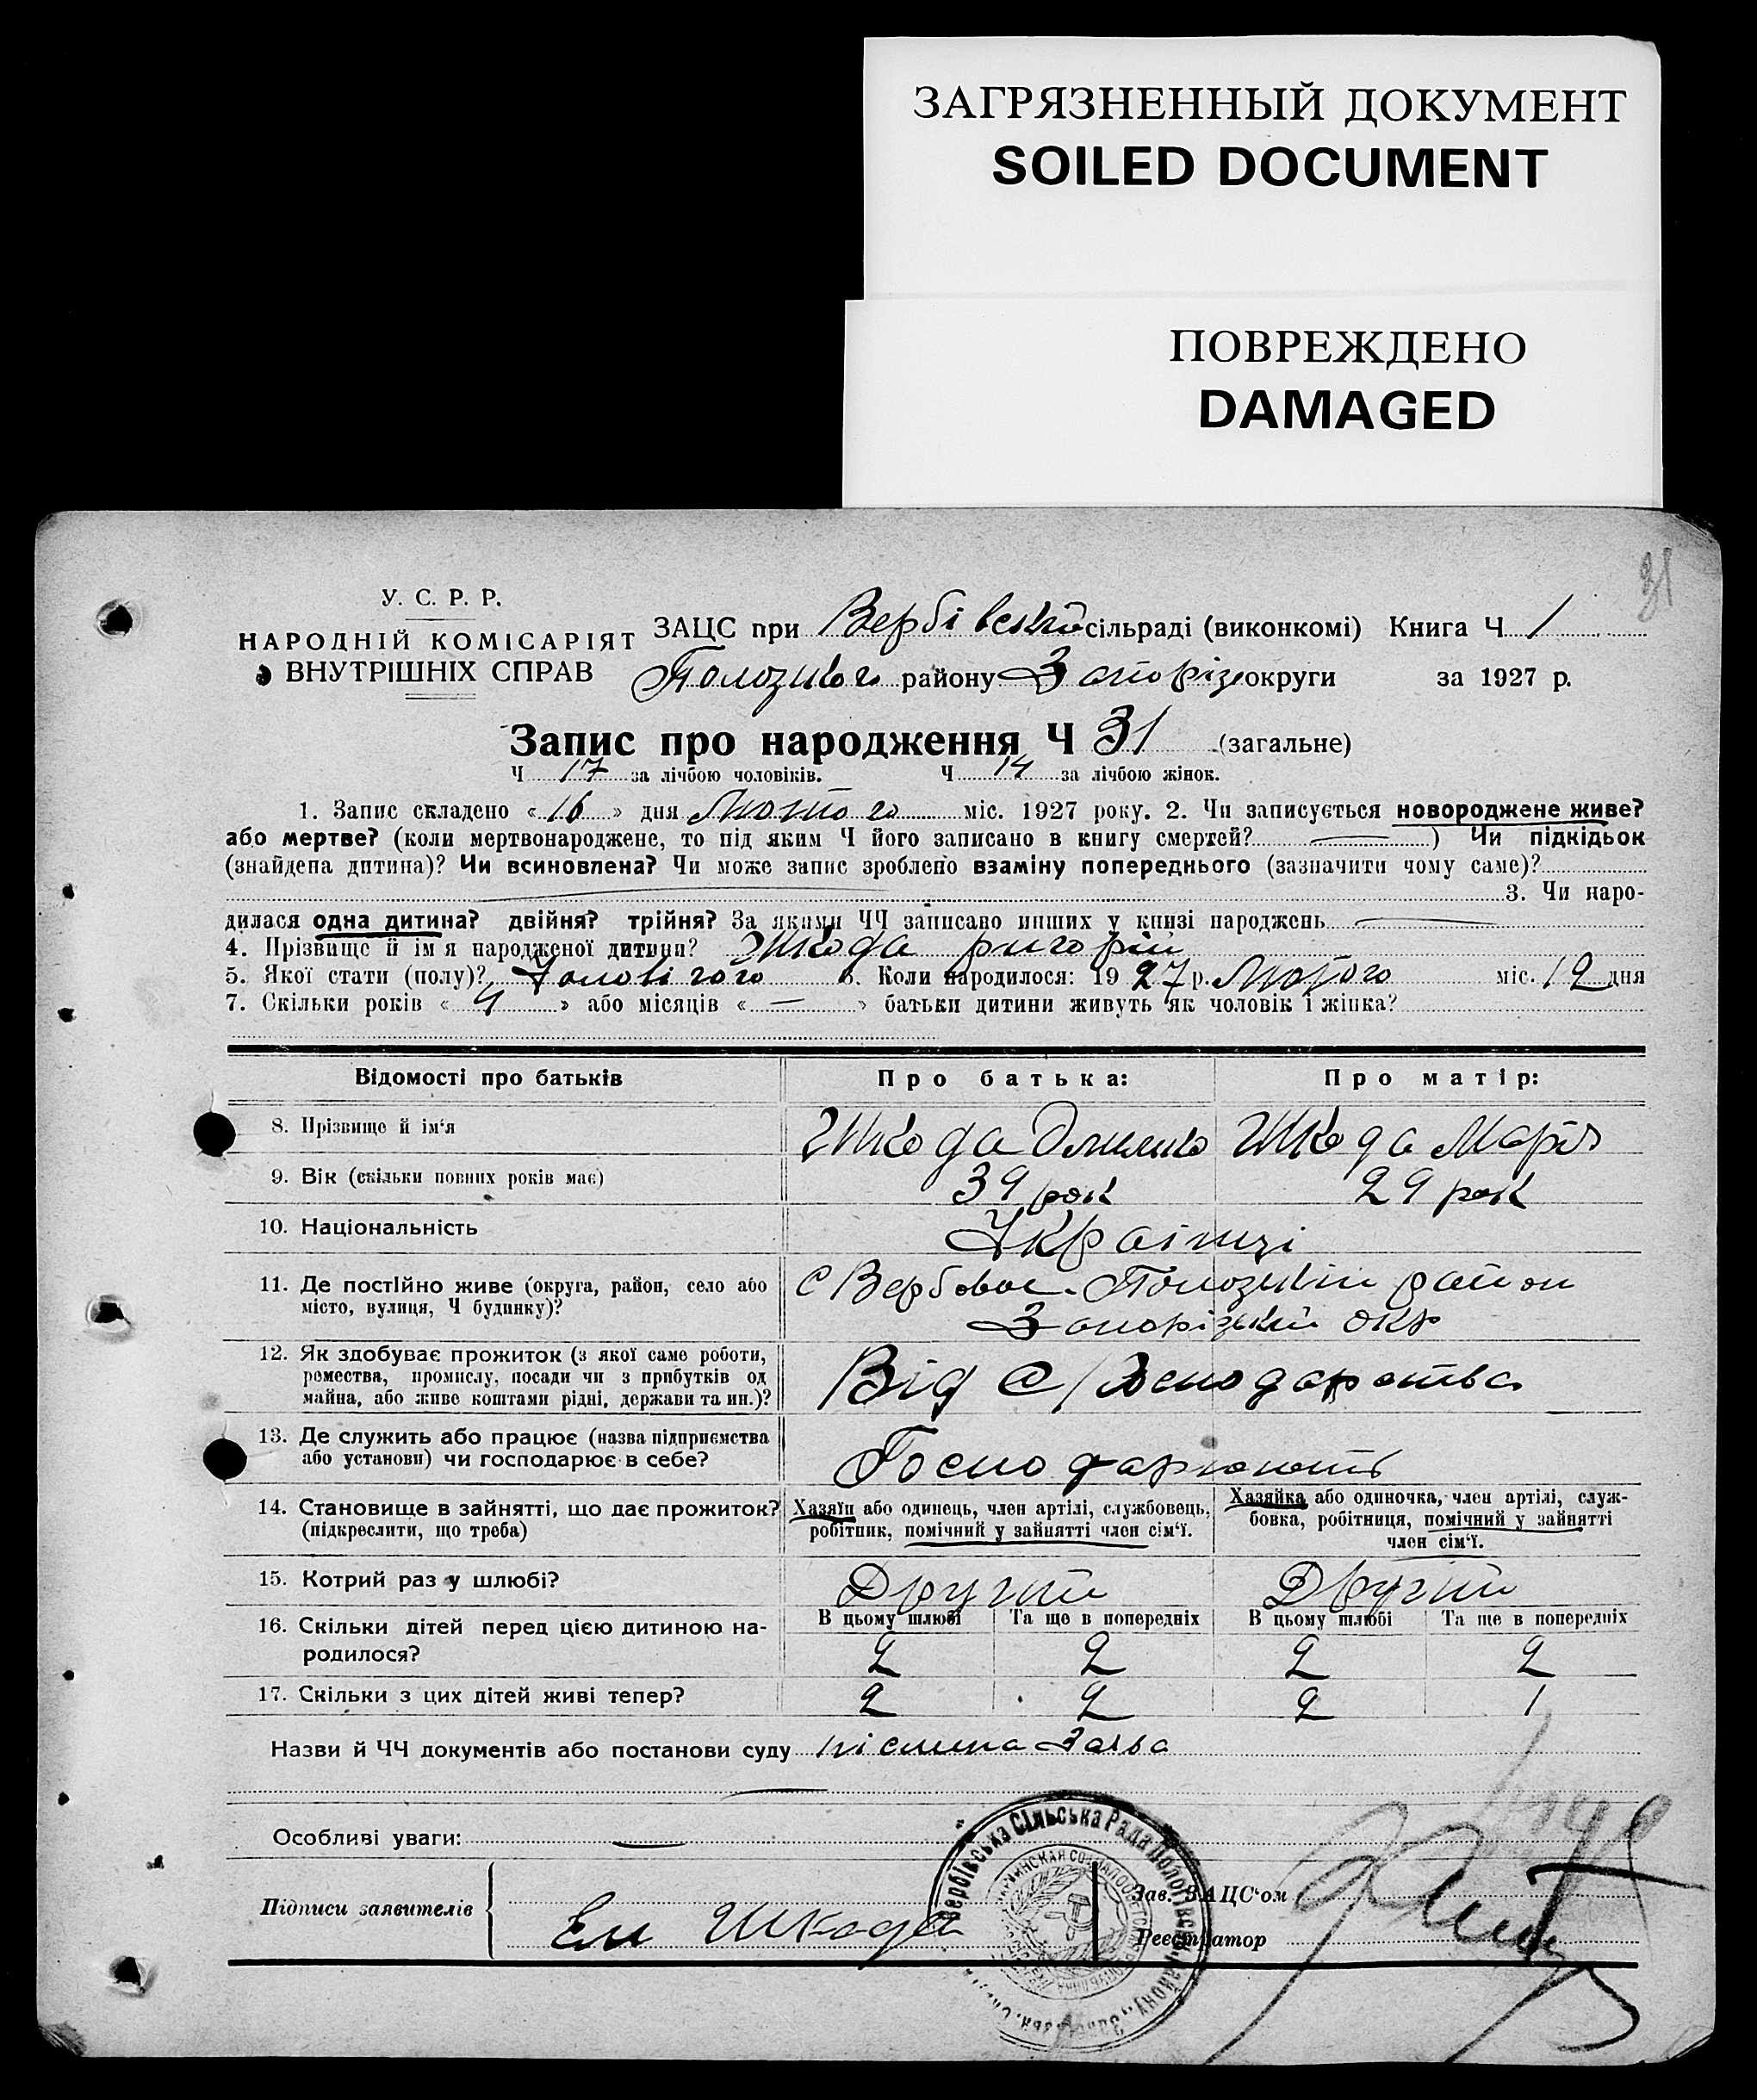 ЗАГРЯЗНЕННЫЙ ДОКУМЕНТ
SOILED DOCUMENT
ПОВРЕЖДЕНО
DAMAGED
31
У. С. Р. Р.
НАРОДНІЙ КОМІСАРІЯТ
ВНУТРІШНІХ СПРАВ
ЗАЦС при Вербівській сільраді (виконкомі) Книга Ч 1
Пологівського району Запоріз округи за 1927 р.
Запис про народження Ч 31 (загальне)
Ч 17 за лічбою чоловіків. Ч 14 за лічбою жінок.
1. Запис складено «16» дня Лютого міс. 1927 року. 2. Чи записується новороджене живе?
або мертве? (коли мертвонароджене, то під яким Ч його записано в книгу смертей? —) Чи підкідьок
(знайдена дитина)? Чи всиновлена? Чи може запис зроблено взаміну попереднього (зазначити чому саме)?
3. Чи наро-
дилася одна дитина? двійня? трійня? За якими ЧЧ записано инших у книзі народжень —
4. Прізвище й ім'я народженої дитини? Шкода ригорій
5. Якої стати (полу)? Чоловічого 6. Коли народилося: 1927 р. Лютого міс. 12 дня
7. Скільки років «4» або місяців «—» батьки дитини живуть як чоловік і жінка?
Відомості про батьків Про батька: Про матір:
8. Прізвище й ім'я Шкода Шкода Марія
9. Вік (скільки повних років має) 39 рок 29 рок
10. Національність Українці
11. Де постійно живе (округа, район, село або
місто, вулиця, Ч будинку)?
С Вербове Пологівський район
Запорізький окр
12. Як здобуває прожиток (з якої саме роботи,
ремества, промислу, посади чи з прибутків од
майна, або живе коштами рідні, держави та ин.)?
Від С/Господарства
13. Де служить або працює (назва підприємства
або установи) чи господарює в себе?
Господарюють
14. Становище в зайнятті, що дає прожиток?
(підкреслити, що треба)
Хазяїн або одинець, член артілі, службовець,
робітник, помічний у зайнятті член сім'ї.
Хазяйка або одиночка, член артілі, служ-
бовка, робітниця, помічний у зайнятті
член сім'ї.
15. Котрий раз у шлюбі? Другий Другий
16. Скільки дітей перед цією дитиною на-
родилося?
В цьому шлюбі Та ще в попередніх В цьому шлюбі Та ще в попередніх
2 2 2 2
17. Скільки з цих дітей живі тепер? 2 2 2 1
Назви й ЧЧ документів або постанови суду пісьмена Заява
Особливі уваги: —
Підписи заявителів Ем Шкода
Зав. ЗАЦС'ом
Реєстратор
Вербівська Сільська Рада Пологівськ. району